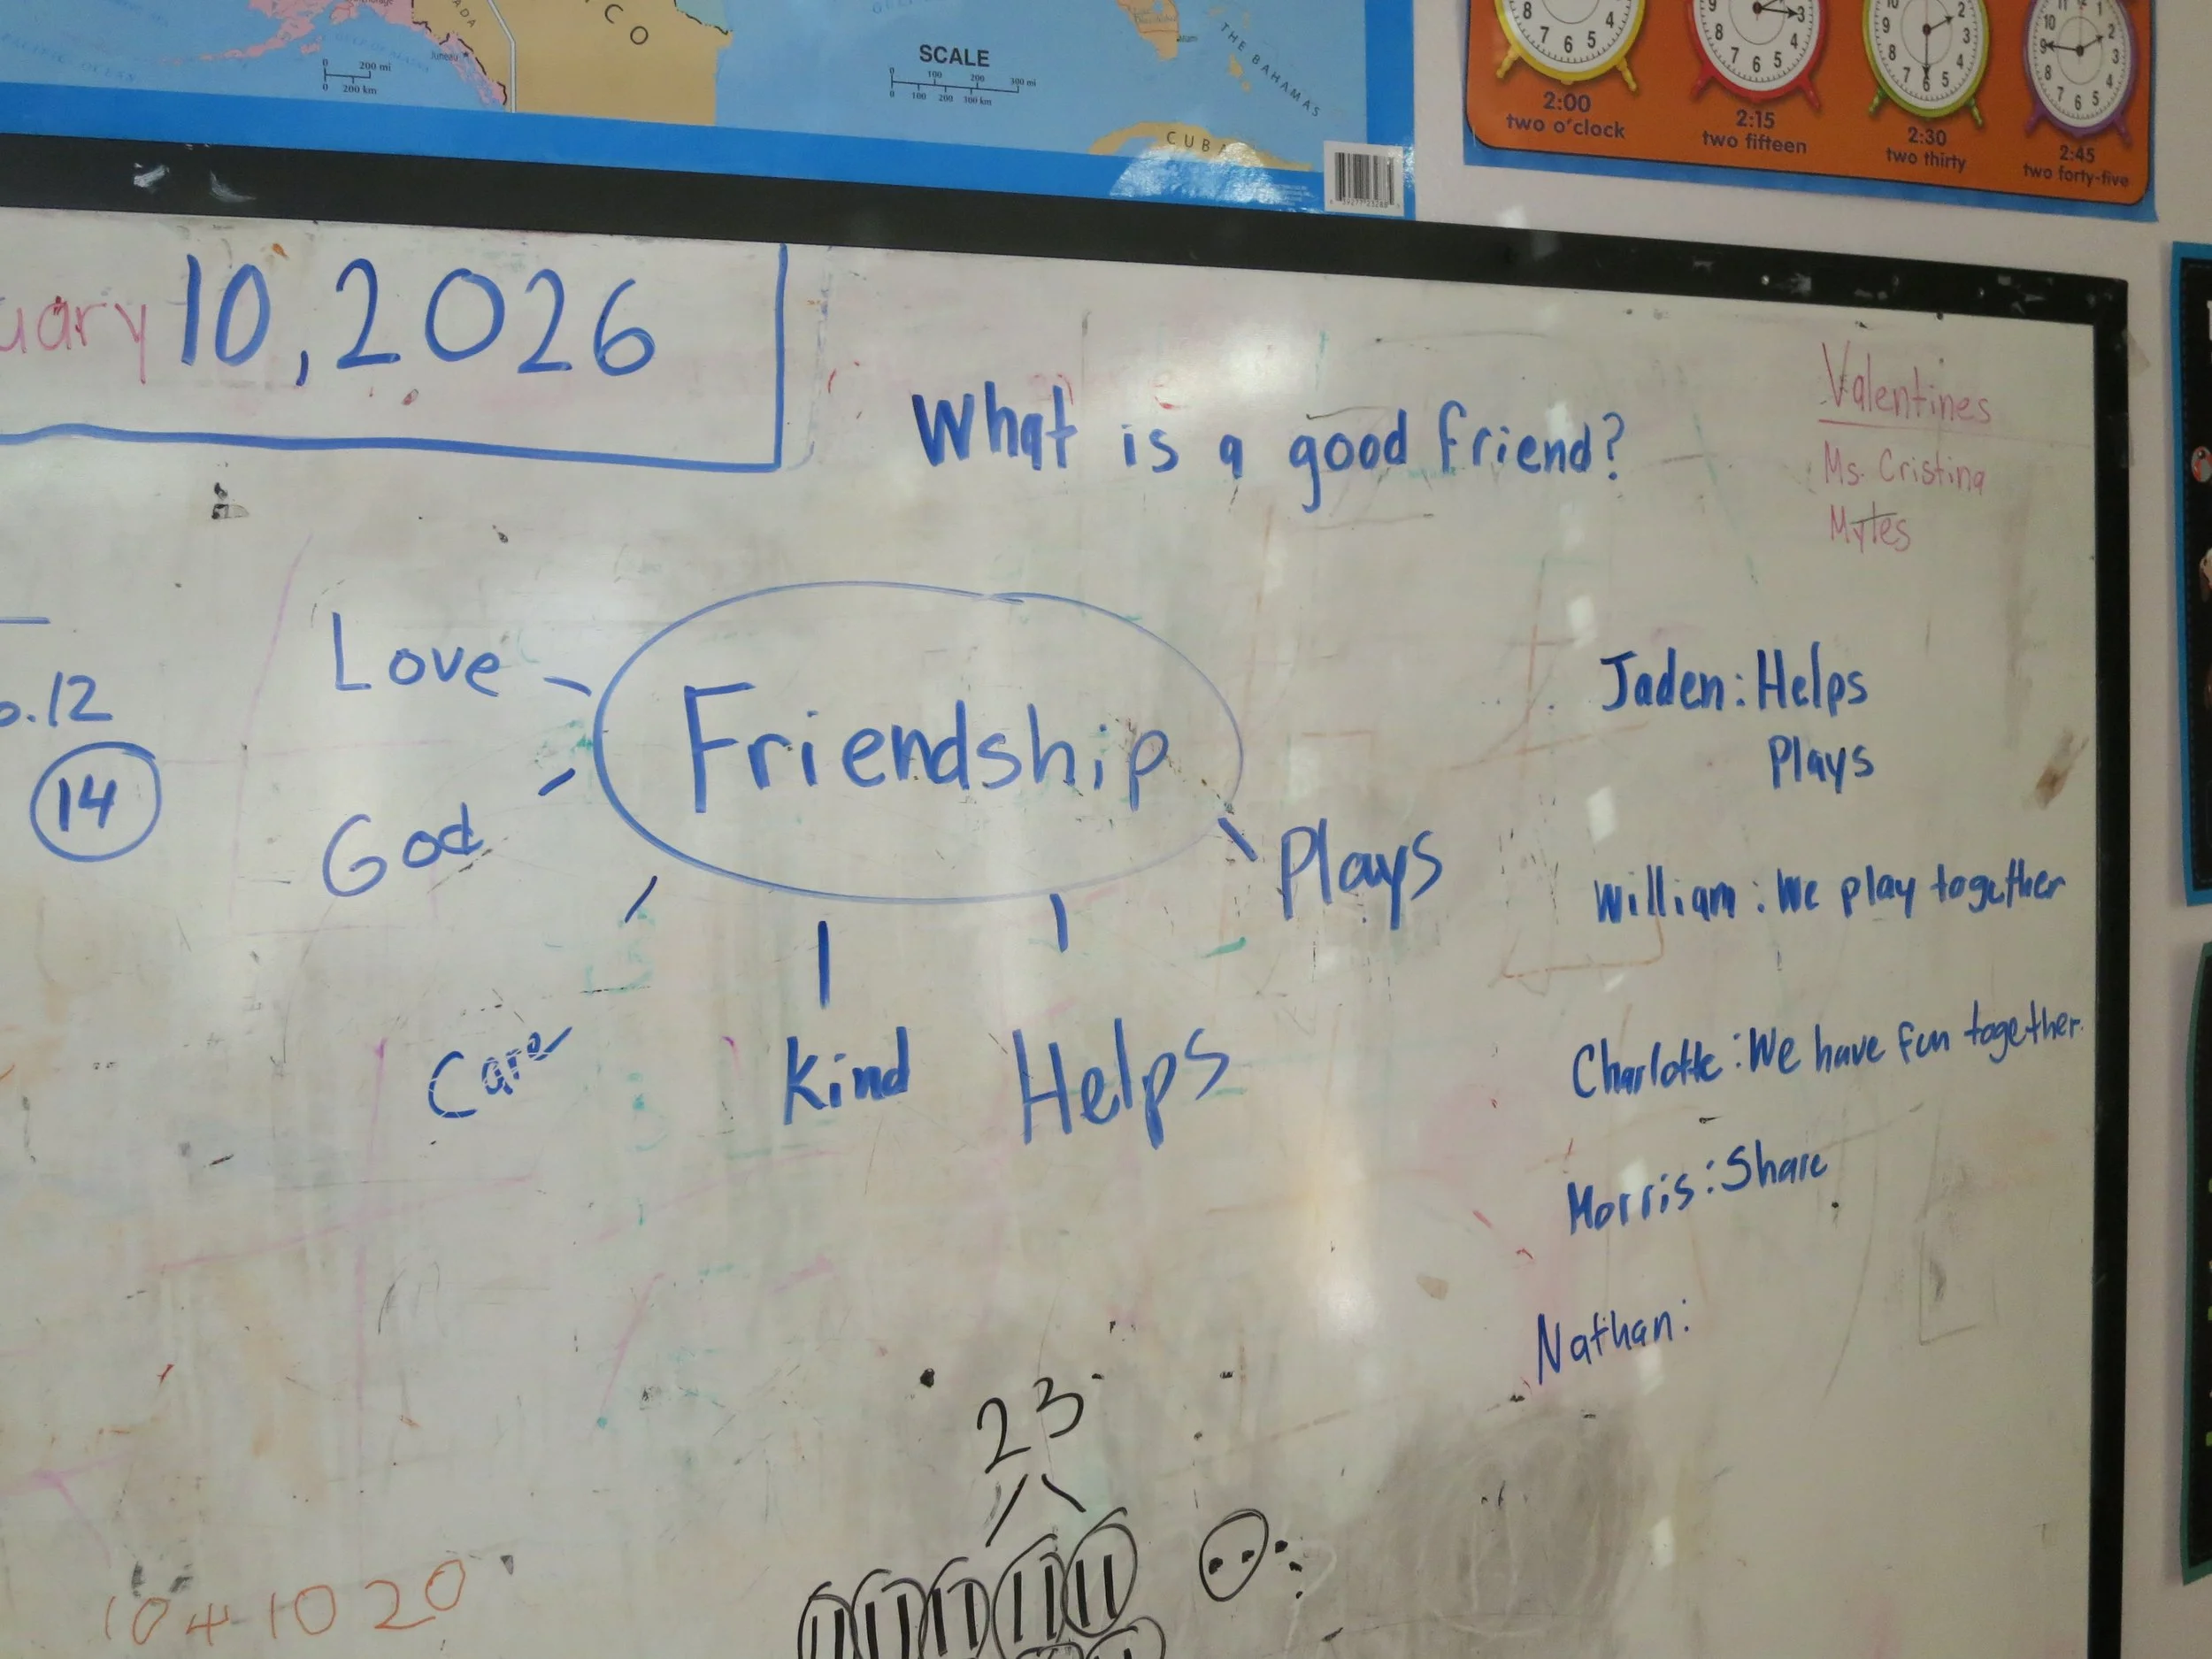 CO
Juneau
0 200 mi
0 200 km
SCALE
0 100 200 300 mi
0 100 200 300 km
THE BAHAMAS
CUBA
2:00
two o'clock
2:15
two fifteen
2:30
two thirty
2:45
two forty-five
uary 10, 2026
What is a good friend?
Valentines
Ms. Cristina
Mytes
.12
14
Love
God
Care
Kind
Helps
Plays
Friendship
Jaden: Helps
Plays
William: We play together
Charlotte: We have fun together.
Morris: Share
Nathan:
23
10+10 20